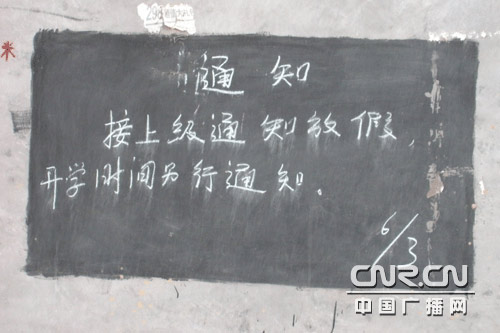 通知
接上级通知放假，
开学时间另行通知。
6/3
米
CNR.CN
中国广播网